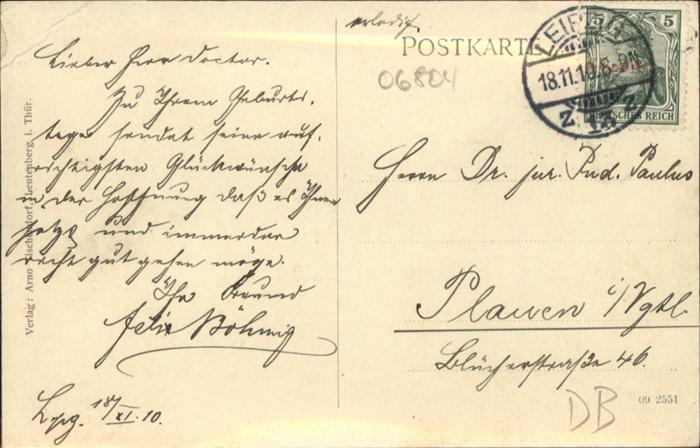 erledigt.
Lieber Herr Doctor.
Zu Ihrem Geburts-
tage sendet seine auf-
richtigsten Glückwünsche
in der Hoffnung daß es Ihnen
jetzt und immerdar
recht gut gehen möge.
Ihr Freund
Felix Böhmig
Lpzg. 18/XI. 10.
Verlag: Arno Leutenberg, i. Thür.
POSTKARTE
06804
LEIPZIG
18.11.10.8-9N.
2.
5 5
DEUTSCHES REICH
Herrn Dr. jur. Rud. Paulus
Plauen i/Vgtl.
Blücherstraße 46.
DB
09 2551